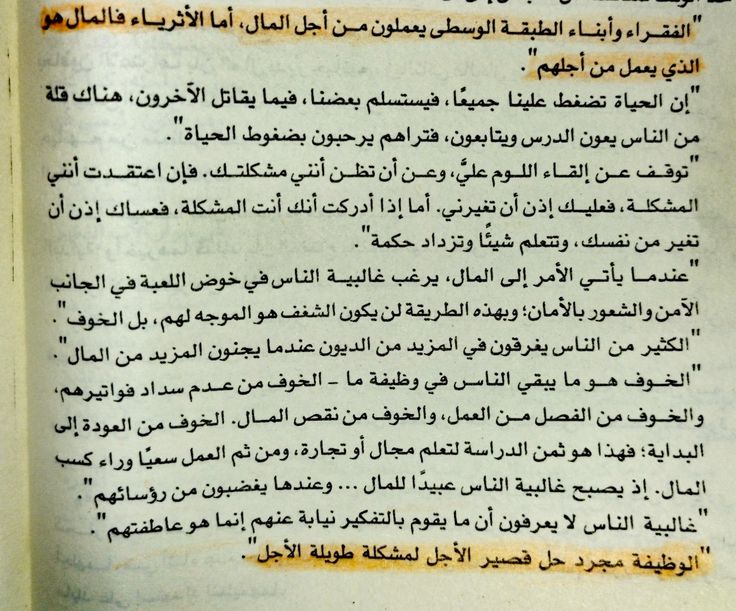 "الفقراء وأبناء الطبقة الوسطى يعملون من أجل المال، أما الأثرياء فالمال هو
الذي يعمل من أجلهم".
"إن الحياة تضغط علينا جميعًا، فيستسلم بعضنا، فيما يقاتل الآخرون، هناك قلة
من الناس يعون الدرس ويتابعون، فتراهم يرحبون بضغوط الحياة".
"توقف عن إلقاء اللوم عليَّ، وعن أن تظن أنني مشكلتك. فإن اعتقدت أنني
المشكلة، فعليك إذن أن تغيرني. أما إذا أدركت أنك أنت المشكلة، فعساك إذن أن
تغير من نفسك، وتتعلم شيئًا وتزداد حكمة".
"عندما يأتي الأمر إلى المال، يرغب غالبية الناس في خوض اللعبة في الجانب
الآمن والشعور بالأمان؛ وبهذه الطريقة لن يكون الشغف هو الموجه لهم، بل الخوف".
"الكثير من الناس يغرقون في المزيد من الديون عندما يجنون المزيد من المال".
"الخوف هو ما يبقي الناس في وظيفة ما – الخوف من عدم سداد فواتيرهم،
والخوف من الفصل من العمل، والخوف من نقص المال. الخوف من العودة إلى
البداية؛ فهذا هو ثمن الدراسة لتعلم مجال أو تجارة، ومن ثم العمل سعيًا وراء كسب
المال. إذ يصبح غالبية الناس عبيدًا للمال ... وعندها يغضبون من رؤسائهم".
"غالبية الناس لا يعرفون أن ما يقوم بالتفكير نيابة عنهم إنما هو عاطفتهم".
"الوظيفة مجرد حل قصير الأجل لمشكلة طويلة الأجل".